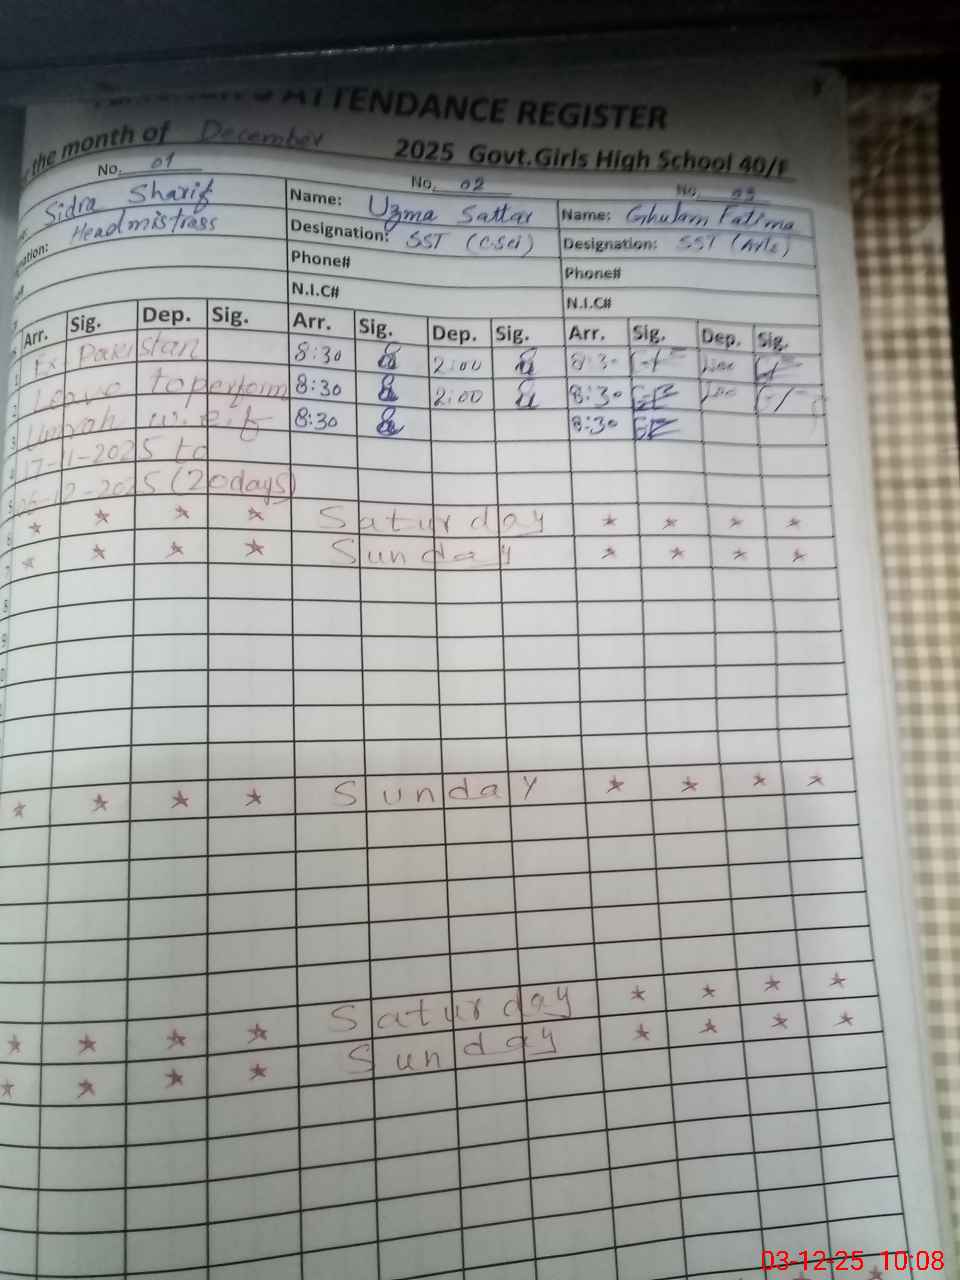 ATTENDANCE REGISTER
the month of December 2025 Govt.Girls High School 40/F
No. 01 No. 02 No. 03
Sidra Sharif Name: Uzma Sattar Name: Ghulam Fatima
Headmistrass Designation: SST (C.Sci) Designation: SST (Arts)
Phone# Phone#
N.I.C# N.I.C#
Arr. Sig. Dep. Sig. Arr. Sig. Dep. Sig. Arr. Sig. Dep. Sig.
1 Ex. Pakistan 8:30 2:00 8:30
2 Leave to perform 8:30 2:00 8:30
3 Umrah w.e.f 8:30 8:30
4 17-11-2025 to
5 06-12-2025 (20days)
6 * * * * Saturday * * * *
7 * * * * Sunday * * * *
8
9
* * * * Sunday * * * *
* * * * Saturday * * * *
* * * * Sunday * * * *
03-12-25 10:08